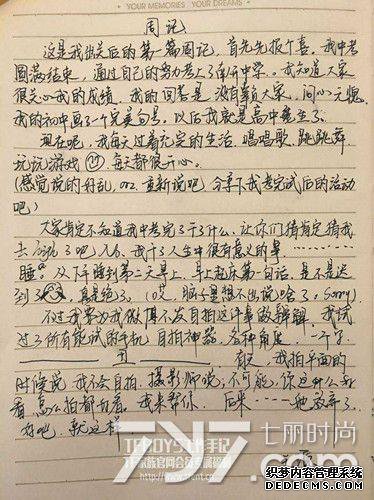 YOUR MEMORIES YOUR DREAMS
周记
这是我出关后的第一篇周记，首先先报个喜。我中考
圆满结束，通过自己的努力考上了南开中学。我知道大家
很关心我的成绩，我的回答是没有辜负大家，问心无愧，
我的初中画了一个完美句号，以后我就是高中生了。
现在呢，我每天过着充实的生活，唱唱歌，跳跳舞，
玩玩游戏，每天都很开心。
(感觉说的好乱，orz，重新说吧，分享下我考完试后的活动
吧)
大家肯定不知道我中考完了干了什么，让你们猜肯定猜我
去了吧，我干了人生中很有意义的事
睡觉，从下午睡到第二天早上，早上起床第一句话，是不是迟
到了，真是绝了。(哎，脑子里想不出说啥了，sorry)
不过我要为我做图不发自拍这件事做解释，我试
过了所有能试的手机，自拍神器，各种角度，
我拍平面的
时候说，我不会自拍，摄影师说，不可能，你这什么
看，怎么拍都好看。我来帮你，后来她放弃了，
好吧，就这样
TFBOYS王源手记
官网会员专属
七丽时尚
织梦内容管理系统
DEDECMS.COM